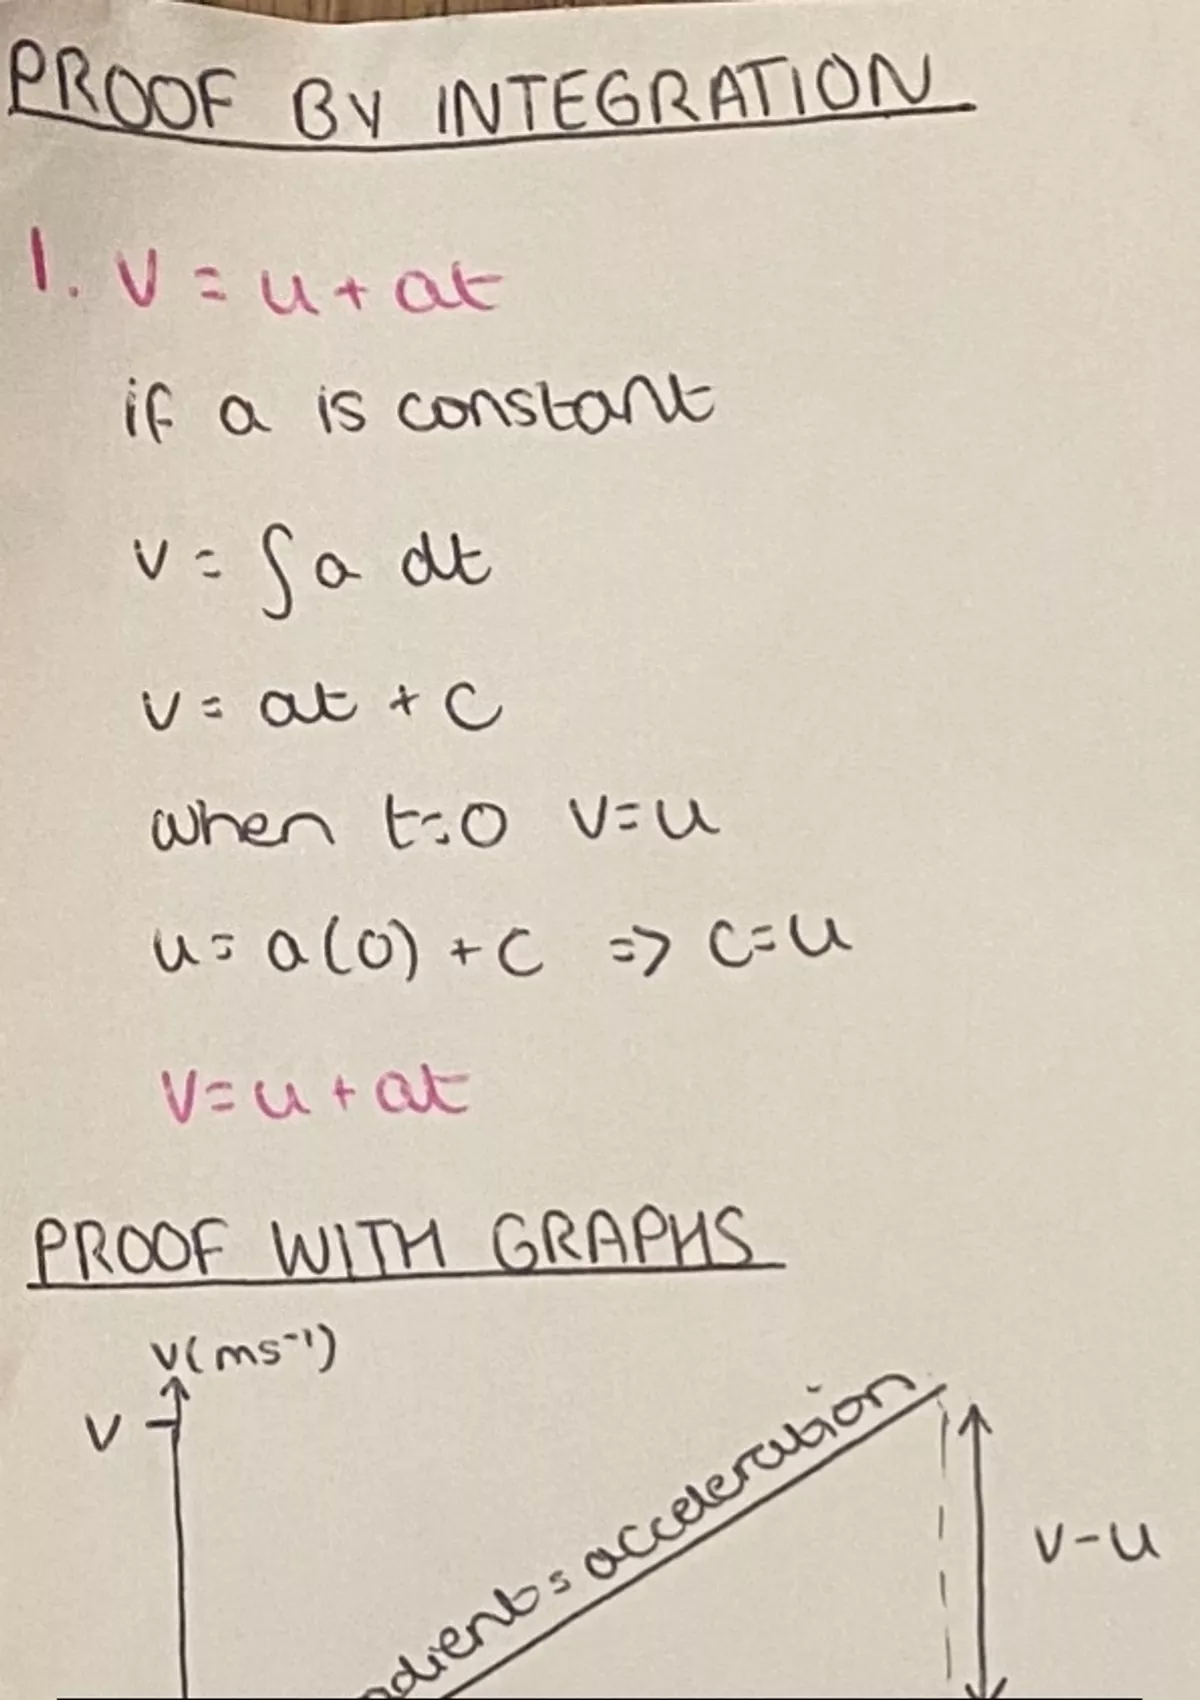 PROOF BY INTEGRATION
1. v = u + at
if a is constant
v = ∫a dt
v = at + c
when t=0 v=u
u = a(0) + c => c=u
v=u + at
PROOF WITH GRAPHS
v(ms⁻¹)
v
= acceleration
v-u